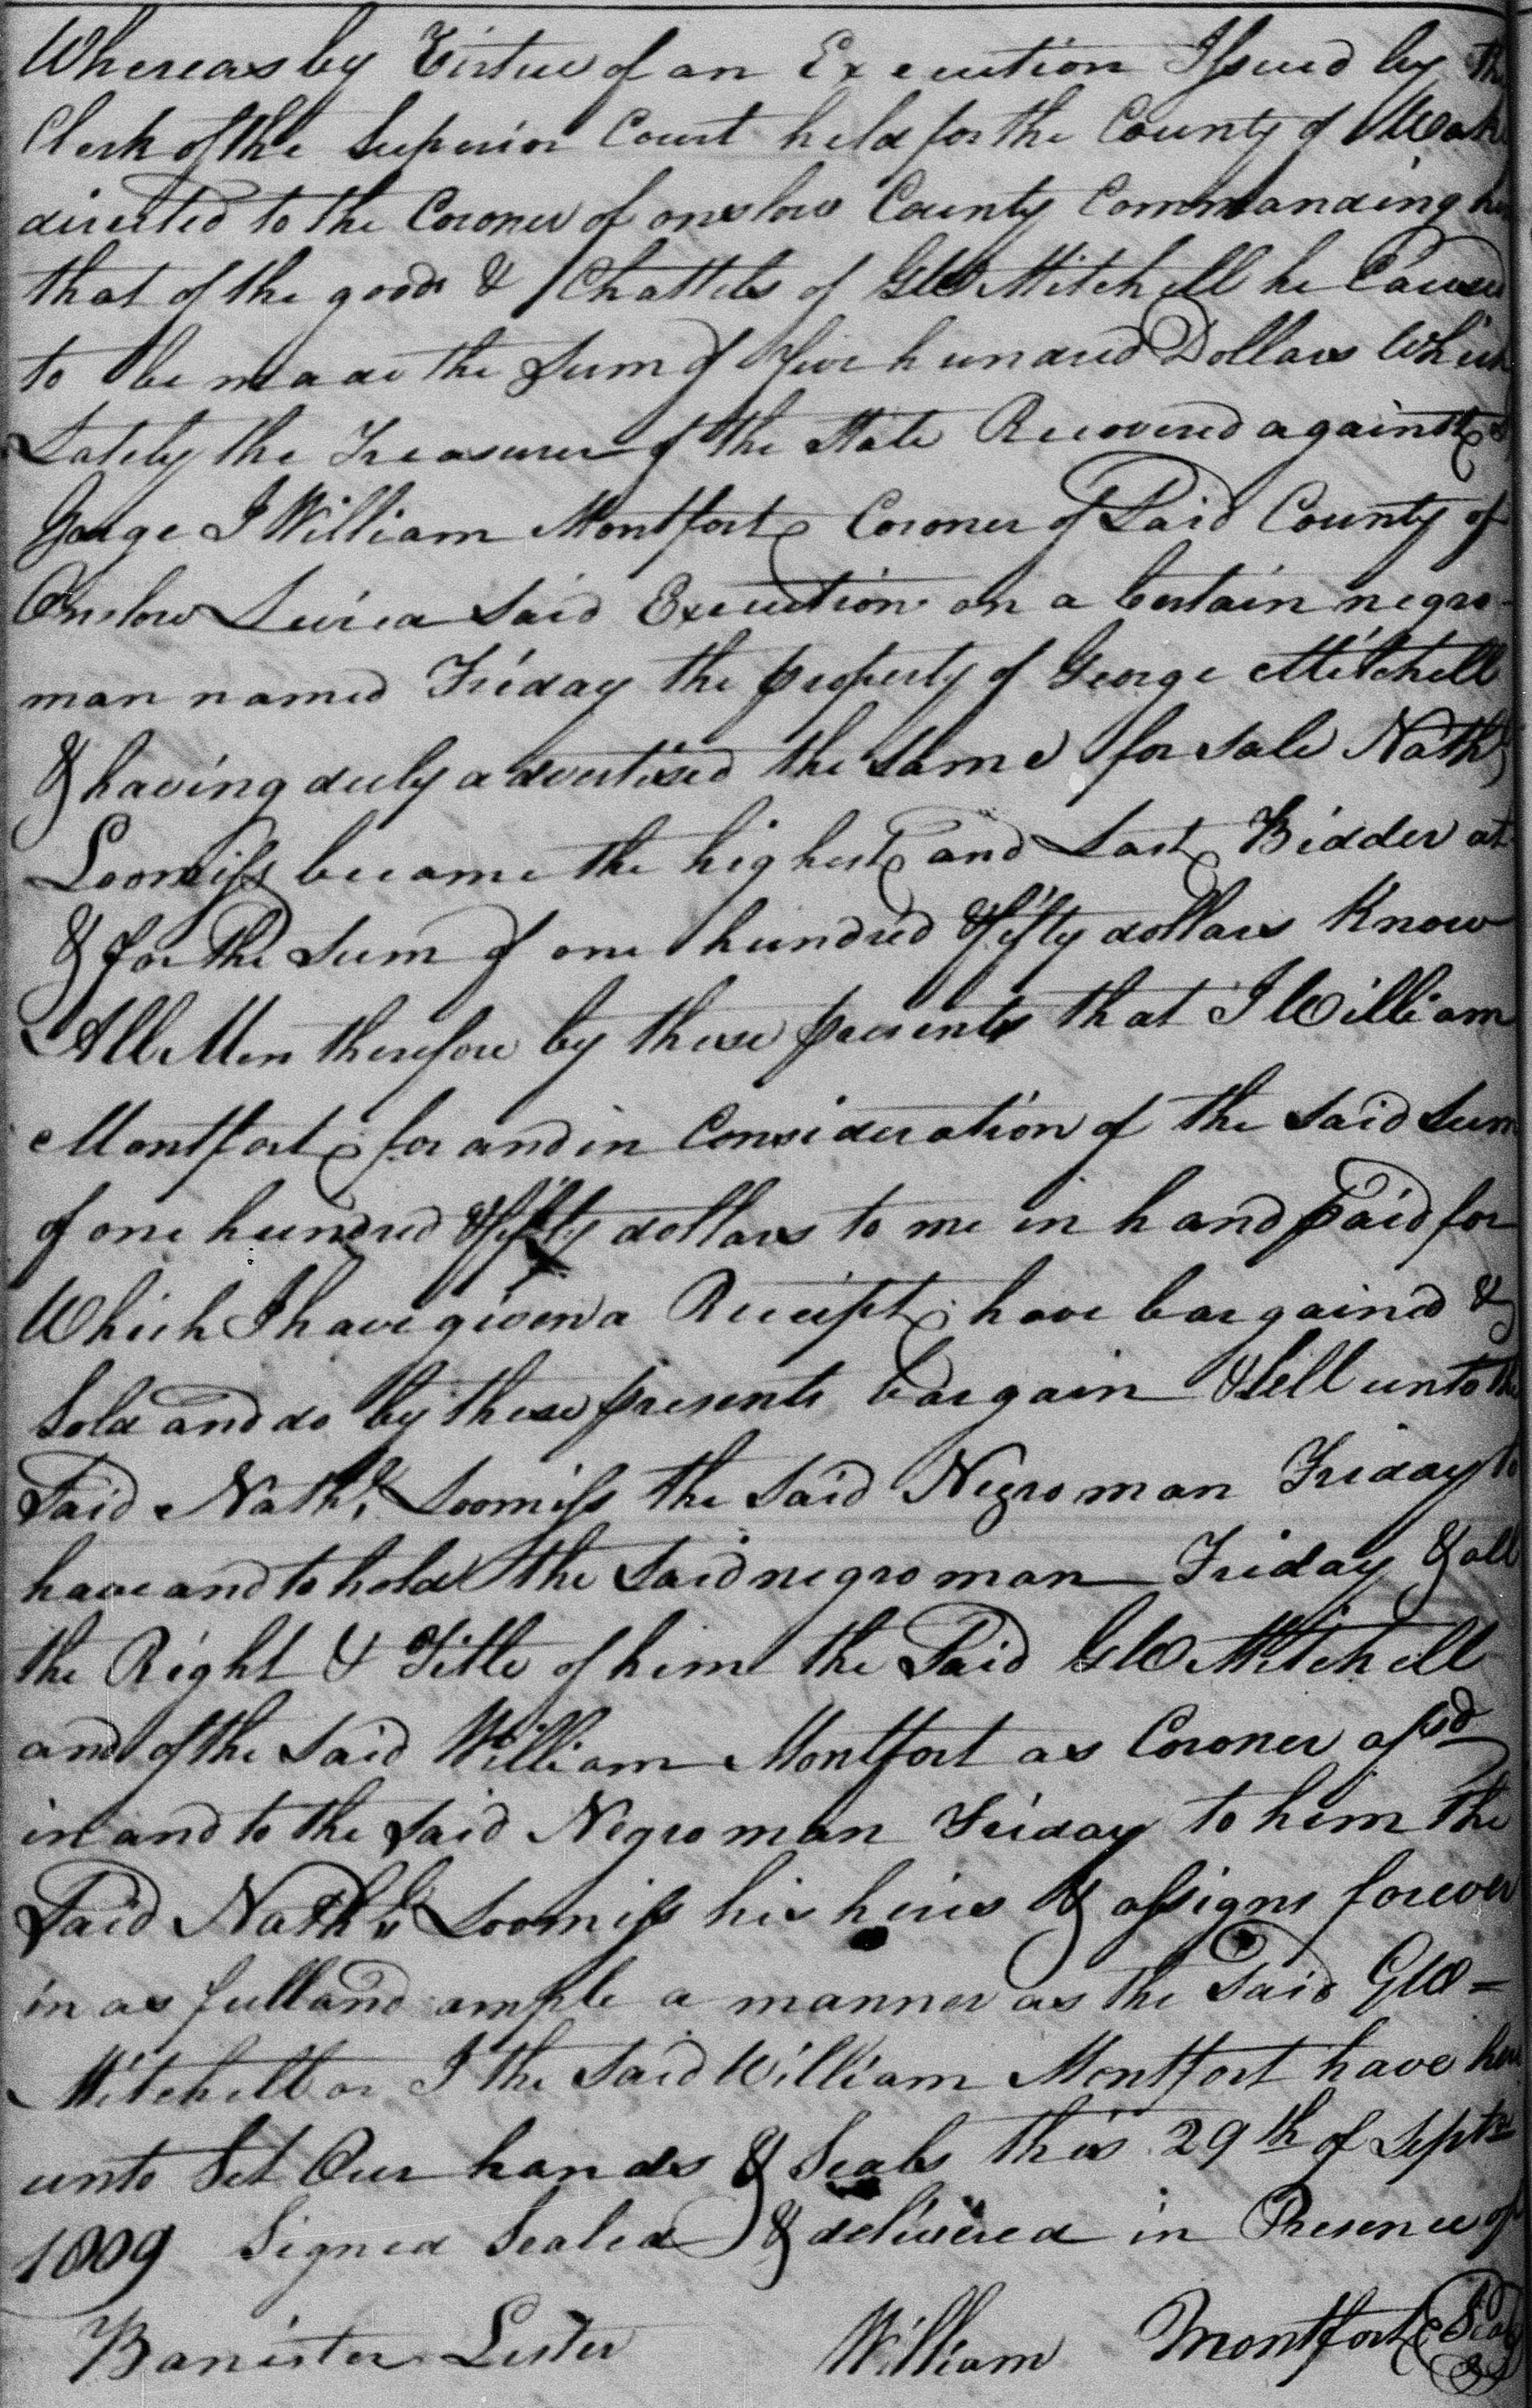 Whereas by Virtue of an Execution Issued by the
Clerk of the Superior Court held for the County of Wake
directed to the Coroner of onslow County Commanding
that of the goods & Chattels of Geo Mitchell he Caused
to be made the Sum of five hundred Dollars Which
Lately the Treasurer of the State Recovered against
George I William Montfort Coroner of Said County of
Onslow Leviea Said Execution on a Certain negro
man named Friday the property of George Mitchell
& having duly advertised the Same for Sale Nathl
Loomiss became the highest and Last Bidder at
& for the Sum of one hundred & fifty dollars Know
All Men therefore by these presents that I William
Montfort for and in Consideration of the Said Sum
of one hundred & fifty dollars to me in hand paid for
Which I have given a Receipt have bargained &
Sold and do by these presents bargain & Sell unto the
Said Nathl Loomiss the Said Negro man Friday to
have and to hold the Said negro man Friday & all
the Right & Title of him the Said Geo Mitchell
and of the Said William Montfort as Coroner afsd
in and to the Said Negro man Friday to him the
Said Nathl Loomiss his heirs & assigns forever
in as full and ample a manner as the Said Geo =
Mitchell or I the Said William Montfort have here
unto Set Our hands & Seals this 29th of Septr
1809 Signed Sealed & delivered in Presence of
Banister Lester William Montfort Seal